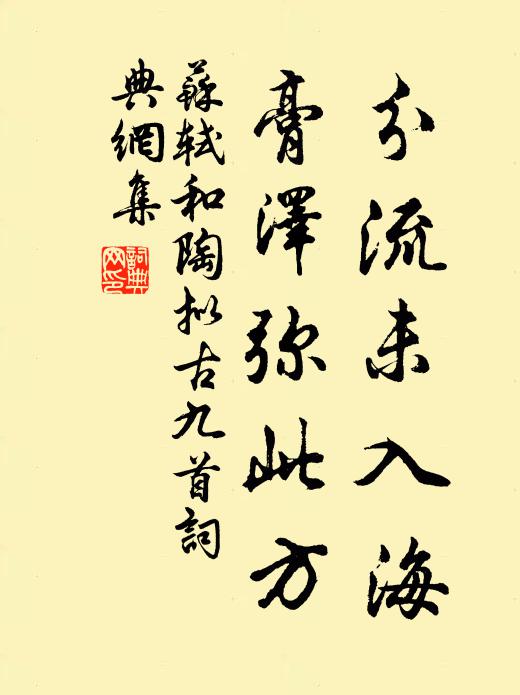 分流未入海
膏澤弥此方
蘇軾和陶拟古九首詞
典網集
詞典
网印